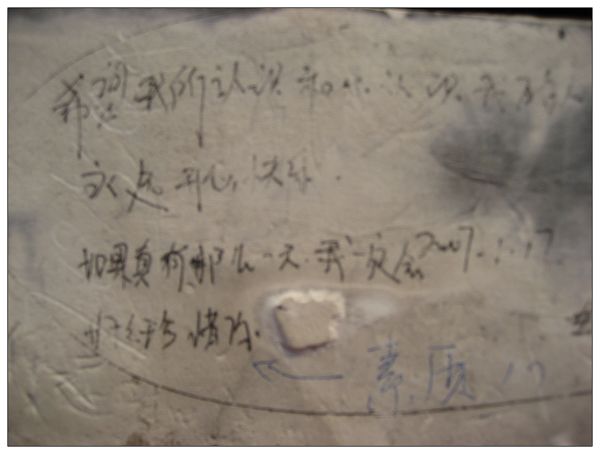 希望我所认识和不认识我的人
永远开心，快乐．
如果真有那么一天．我一定会 2007.1.17
好好珍惜
素质